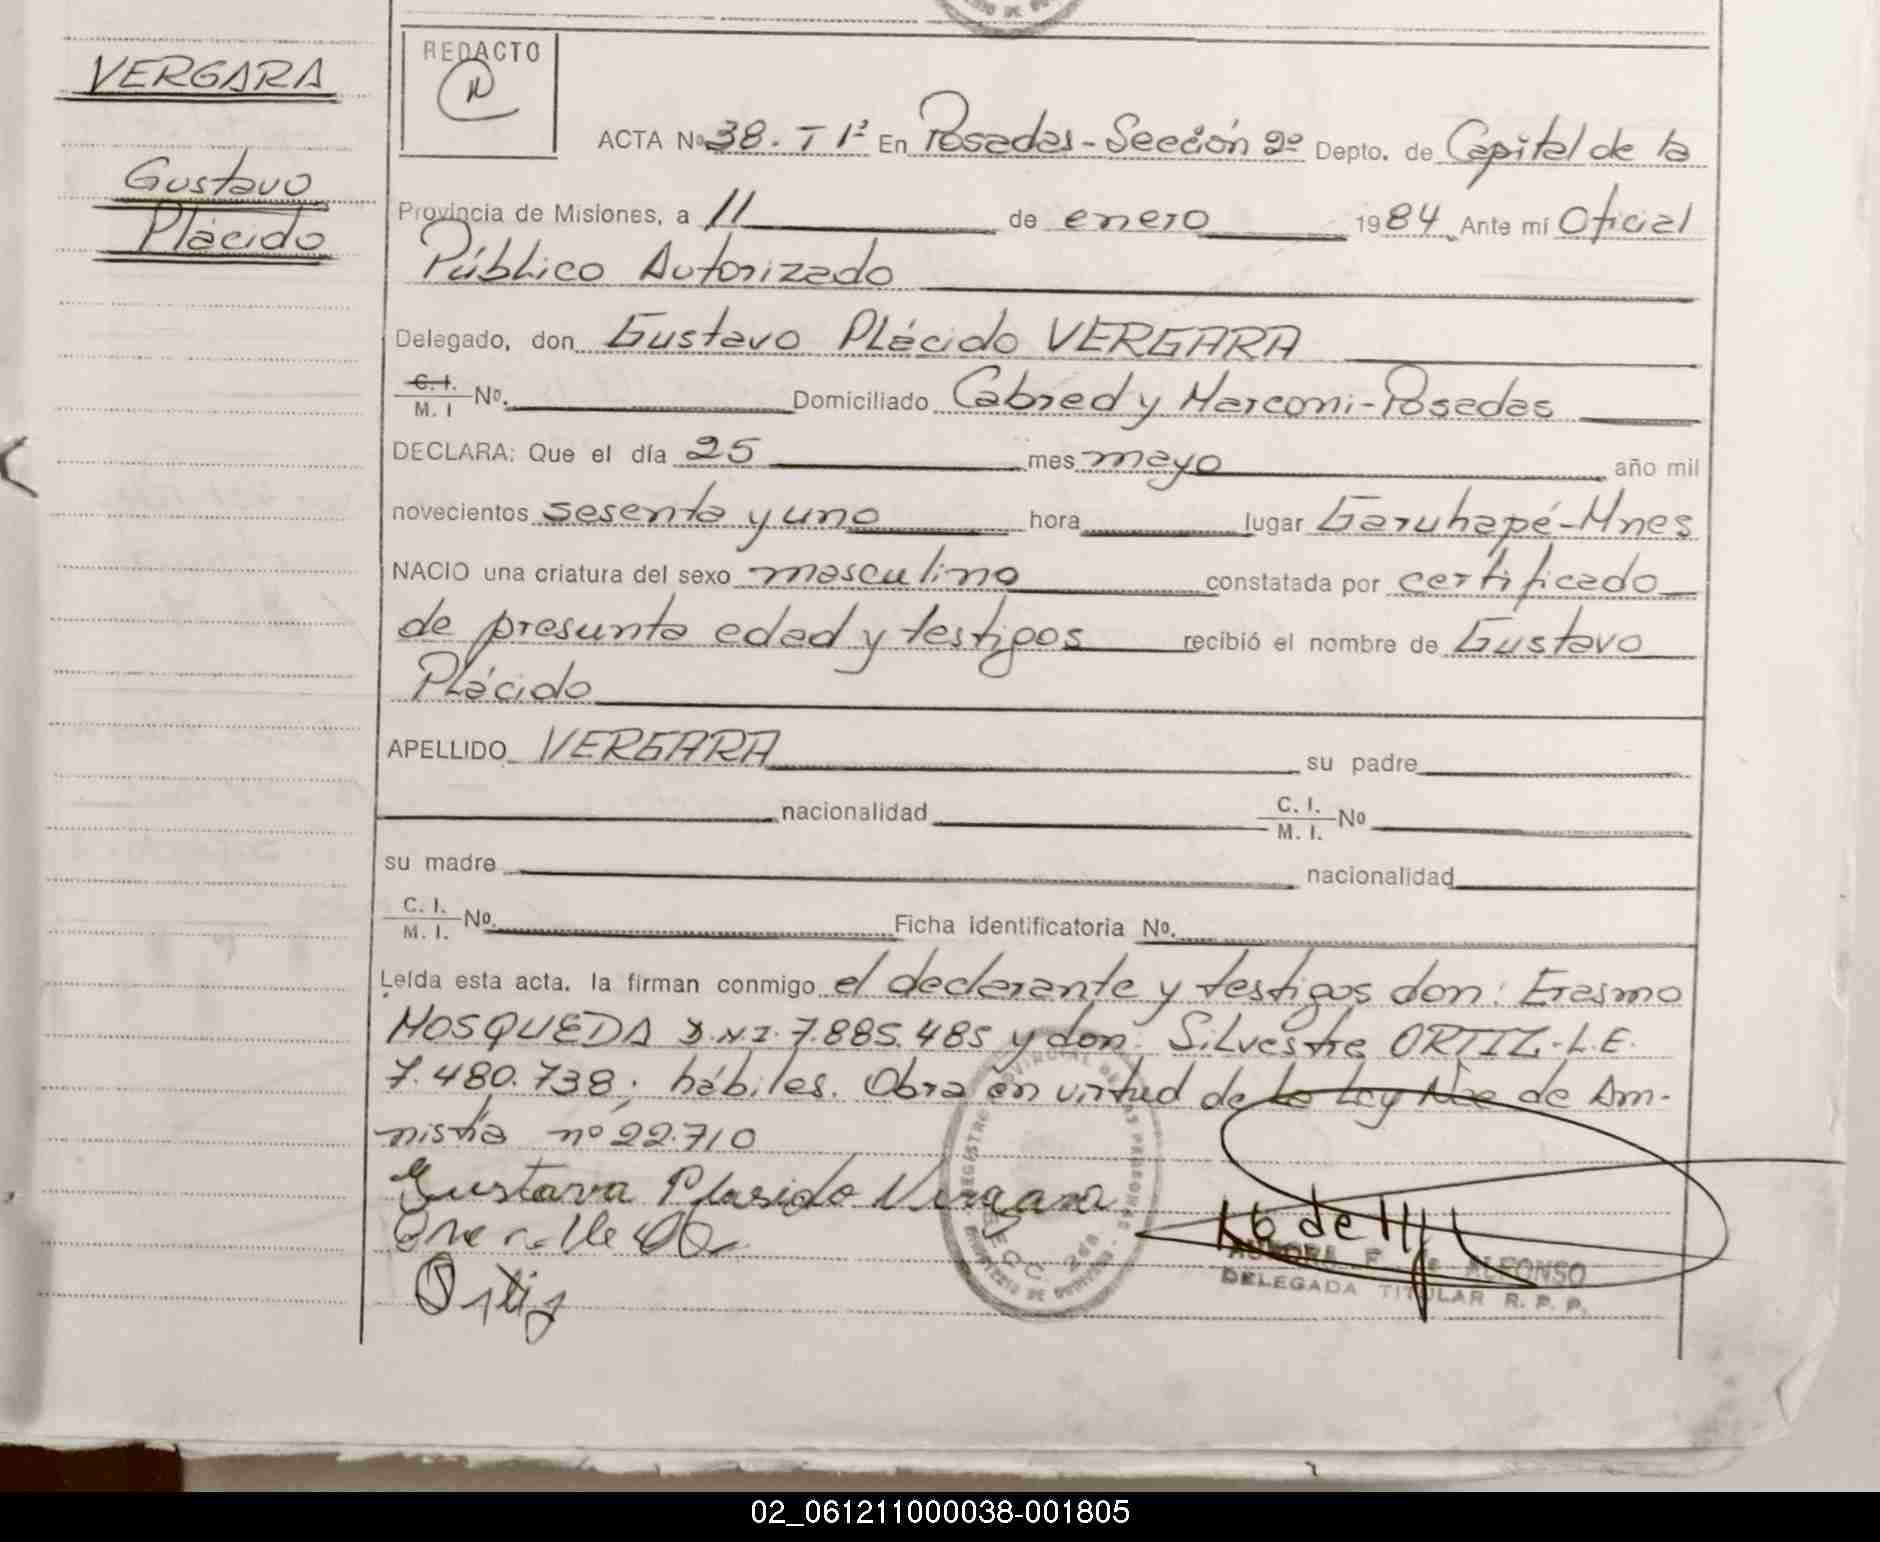 VERGARA
Gustavo
Plácido
REDACTO
ACTA Nº 38. T 1º En Posadas-Sección 2º Depto. de Capital de la
Provincia de Misiones, a 11 de enero 1984 Ante mí Oficial
Público Autorizado
Delegado, don Gustavo Plácido VERGARA
C.I. M.I Nº. Domiciliado Cabred y Marconi-Posadas
DECLARA: Que el día 25 mes mayo año mil
novecientos sesenta y uno hora lugar Garuhapé-Mnes
NACIO una criatura del sexo masculino constatada por certificado
de presunta edad y testigos recibió el nombre de Gustavo
Plácido
APELLIDO VERGARA su padre
nacionalidad C. I. M. I. Nº
su madre nacionalidad
C. I. M. I. Nº. Ficha identificatoria Nº.
Leída esta acta. la firman conmigo el declarante y testigos don: Erasmo
MOSQUEDA D.N.I. 7.885.485 y don: Silvestre ORTIZ-L.E.
7.480.738; hábiles. Obra en virtud de la Ley Nac de Am-
nistia nº 22.710
Gustavo Plasido Vergara
Ortiz
SECC. 2da
ALFONSO
DELEGADA TITULAR R. P. P.
02_061211000038-001805